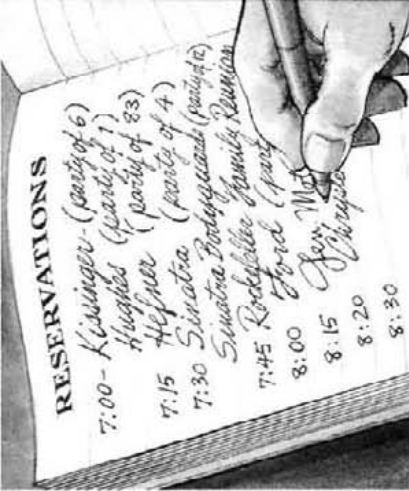 RESERVATIONS
7:00 - Kissinger - (party of 6)
Hughes (party of 1)
7:15 Hefner (party of 83)
7:30 Sinatra (party of 4)
Sinatra Bodyguards (party of 12)
7:45 Rockefeller Family Reunion
8:00 Ford (part
8:15 Sen.
Christo
8:20
8:30